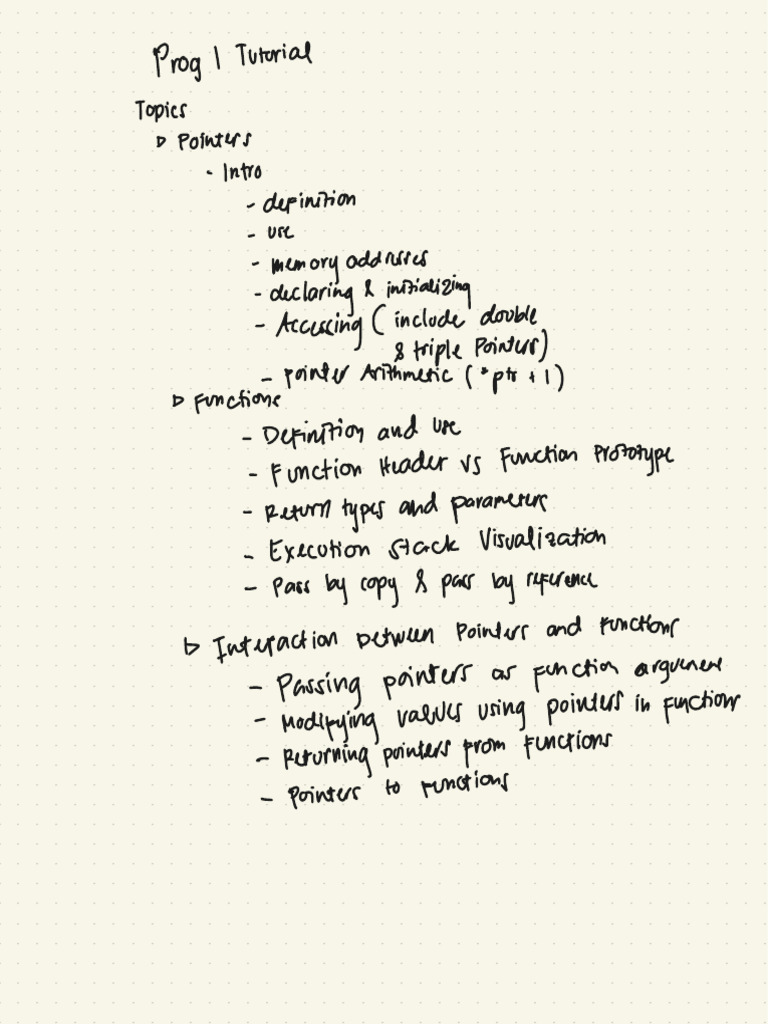 Prog 1 Tutorial
Topics
▷ Pointers
- Intro
- definition
- use
- memory addresses
- declaring & initializing
- Accessing ( include double
& triple Pointers)
- Pointer Arithmetic ( *ptr + 1 )
▷ Functions
- Definition and use
- Function Header vs Function Prototype
- Return types and parameters
- Execution Stack Visualization
- Pass by copy & pass by reference
▷ Interaction between Pointers and Functions
- Passing pointers as function argument
- Modifying values using pointers in functions
- Returning pointers from functions
- Pointers to functions